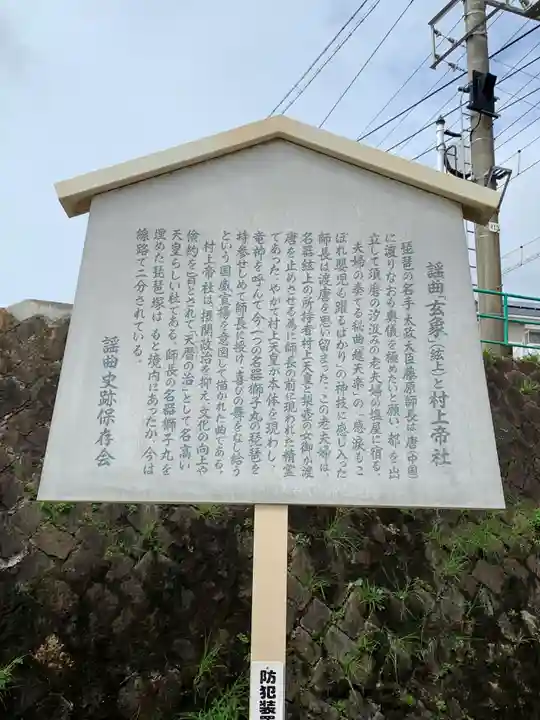 謡曲「玄象」(絃上)と村上帝社
琵琶の名手太政大臣藤原師長は唐(中国)
に渡りなおも奥儀を極めたいと願い、都を出
立して須磨の汐汲みの老夫婦の塩屋に宿る。
夫婦の奏でる秘曲越天楽の「感涙もこ
ぼれ嬰児も躍るばかり」の神技に感じ入った
師長は渡唐を思い留まった。この老夫婦は、
名器絃上の所持者村上天皇と梨壺の女御が渡
唐を止めさせる為に師長の前に現われた精霊
であった。やがて村上天皇が本体を現わし、
竜神を呼んで今一つの名器獅子丸の琵琶を
持参せしめて師長に授け、喜びの舞をなし給う
という国威宣揚を意図して描かれた曲である。
村上帝社は、摂関政治を抑え文化の向上や
倹約を旨とされて「天暦の治」として名高い
天皇らしい社である。師長の名器獅子丸を
埋めた琵琶塚は、もと境内にあったが、今は
線路で二分されている。
謡曲史跡保存会
防犯装置